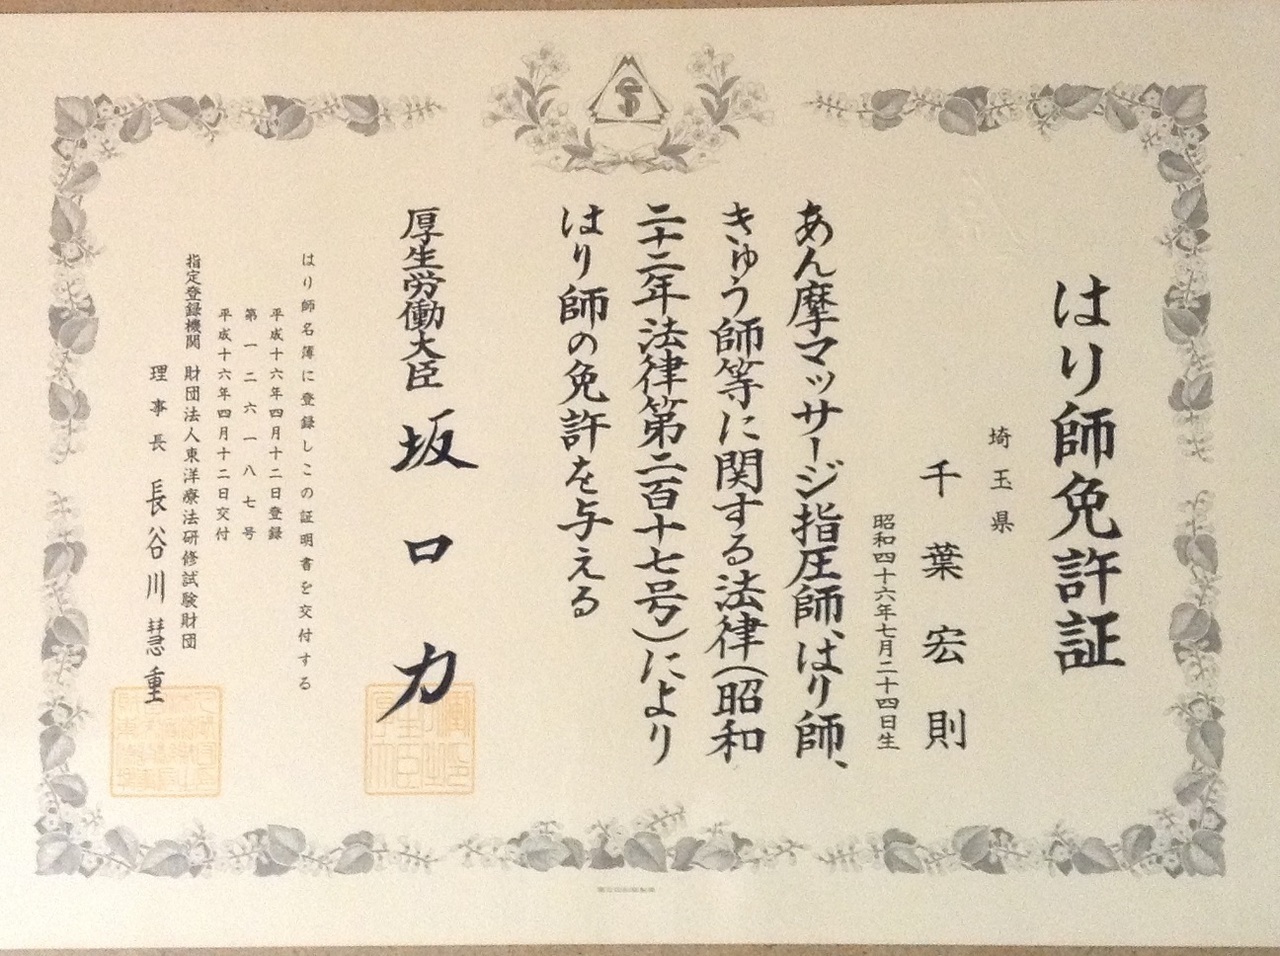 はり師免許証
埼玉県
千葉宏則
昭和四十六年七月二十四日生
あん摩マッサージ指圧師、はり師、
きゅう師等に関する法律（昭和
二十二年法律第二百十七号）により
はり師の免許を与える
厚生労働大臣 坂口力
はり師名簿に登録しこの証明書を交付する
平成十六年四月十二日登録
第一二六一八七号
平成十六年四月十二日交付
指定登録機関 財団法人東洋療法研修試験財団
理事長 長谷川慧重